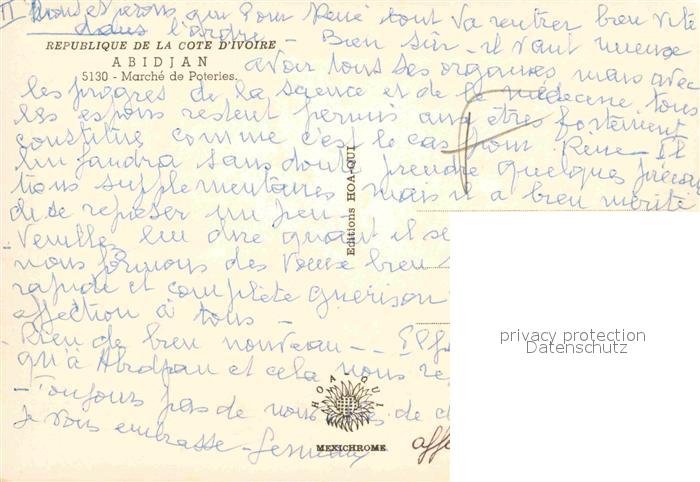 II Nous espérons que pour René tout va rentrer bien vite
dans l'ordre - Bien sûr - il vaut mieux
REPUBLIQUE DE LA COTE D'IVOIRE
ABIDJAN
5130 - Marché de Poteries.
avoir tous ses organes, mais avec
les progrès de la science et de la médecine, tous
les espoirs restent permis aux êtres fortement
constitué comme c'est le cas pour René - Il
lui faudra sans doute prendre quelques précau
tions supplémentaires mais il a bien mérité
de se reposer un peu.
- Veuillez lui dire quant il se
nous formons des voeux bien
rapide et complète guérison
affection à tous -
- Rien de bien nouveau - - Il
qu'à Abidjan et cela nous
- Toujours pas de nous de
je vous embrasse -
Editions HOA-QUI
HOA QUI
MEXICHROME
aff
privacy protection
Datenschutz